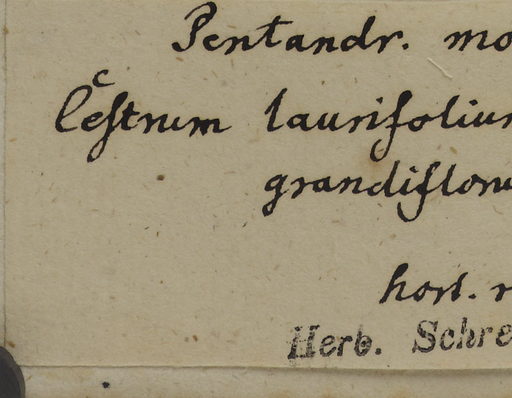 Pentandr. mo
Cestrum laurifolium
grandifloru
hort. r
Herb. Schre